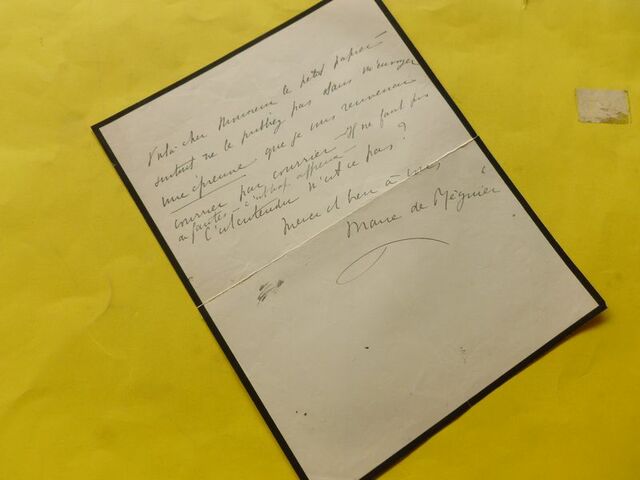 Voilà cher Monsieur le petit papier –
surtout ne le publiez pas sans m'envoyer
une épreuve que je vous renverrai
courrier par courrier – Il ne faut pas
de fautes – c'est trop affreux
C'est entendu n'est ce pas ?
Merci et bien à vous
Marie de Régnier